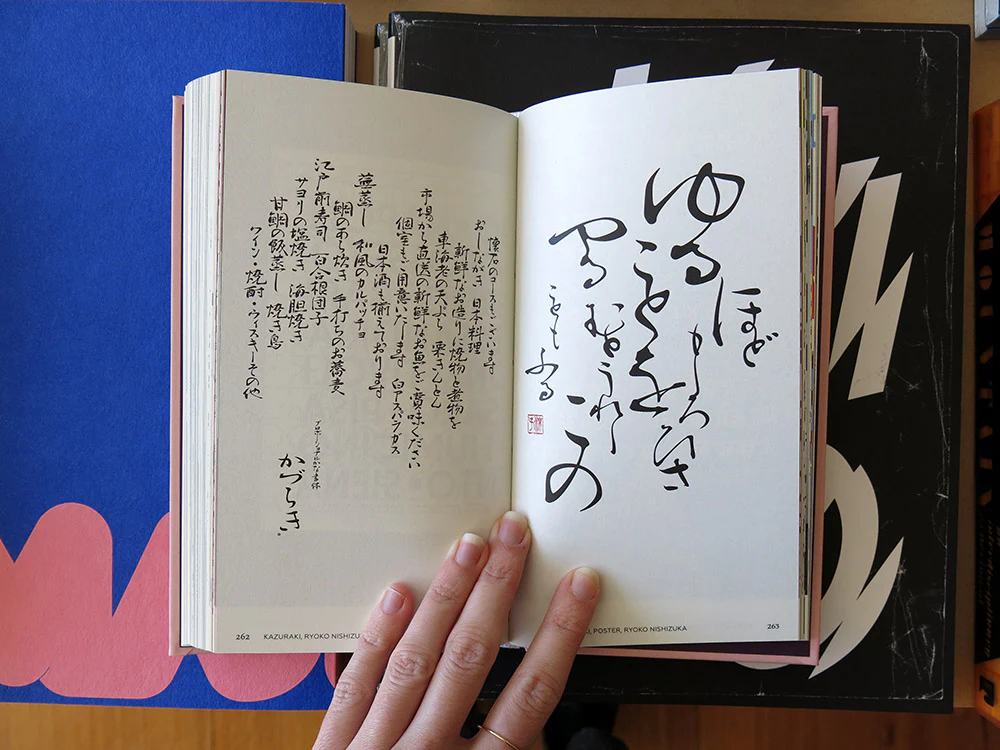 懐石のコースもございます
おしながき 日本料理
新鮮なお造りに焼物と煮物を
車海老の天ぷら 栗きんとん
市場から直送の新鮮なお魚をご賞味ください
個室もご用意いたします 白アスパラガス
日本酒も揃えております
蒸し 和風のカルパッチョ
鯛のあら炊き 手打ちのお蕎麦
江戸前寿司 百合根団子
サヨリの塩焼き 海胆焼き
甘鯛の飯蒸し 焼き鳥
ワイン・焼酎・ウィスキーその他
プロポーショナルかな書体
かづらき
262 KAZURAKI, RYOKO NISHIZU
ほど
ゆる
ことを
この
POSTER, RYOKO NISHIZUKA 263